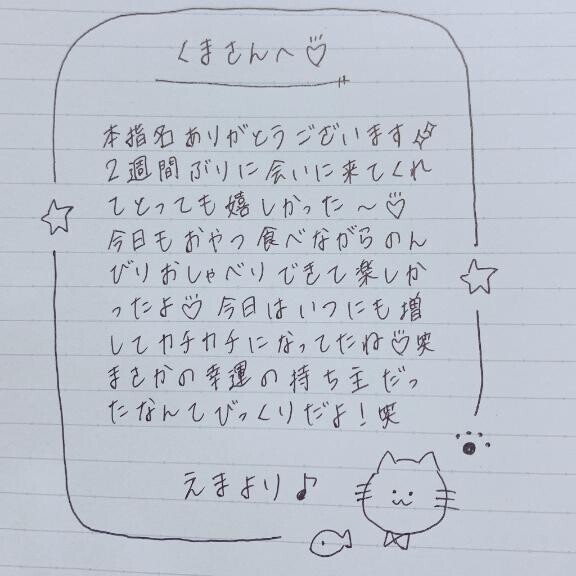 くまさんへ♡
本指名ありがとうございます✨
2週間ぶりに会いに来てくれ
てとっても嬉しかった〜♡
今日もおやつ食べながらのん
びりおしゃべりできて楽しか
ったよ♡今日はいつにも増
してカチカチになってたね♡笑
まさかの幸運の持ち主だっ
たなんてびっくりだよ!笑
えまより♪